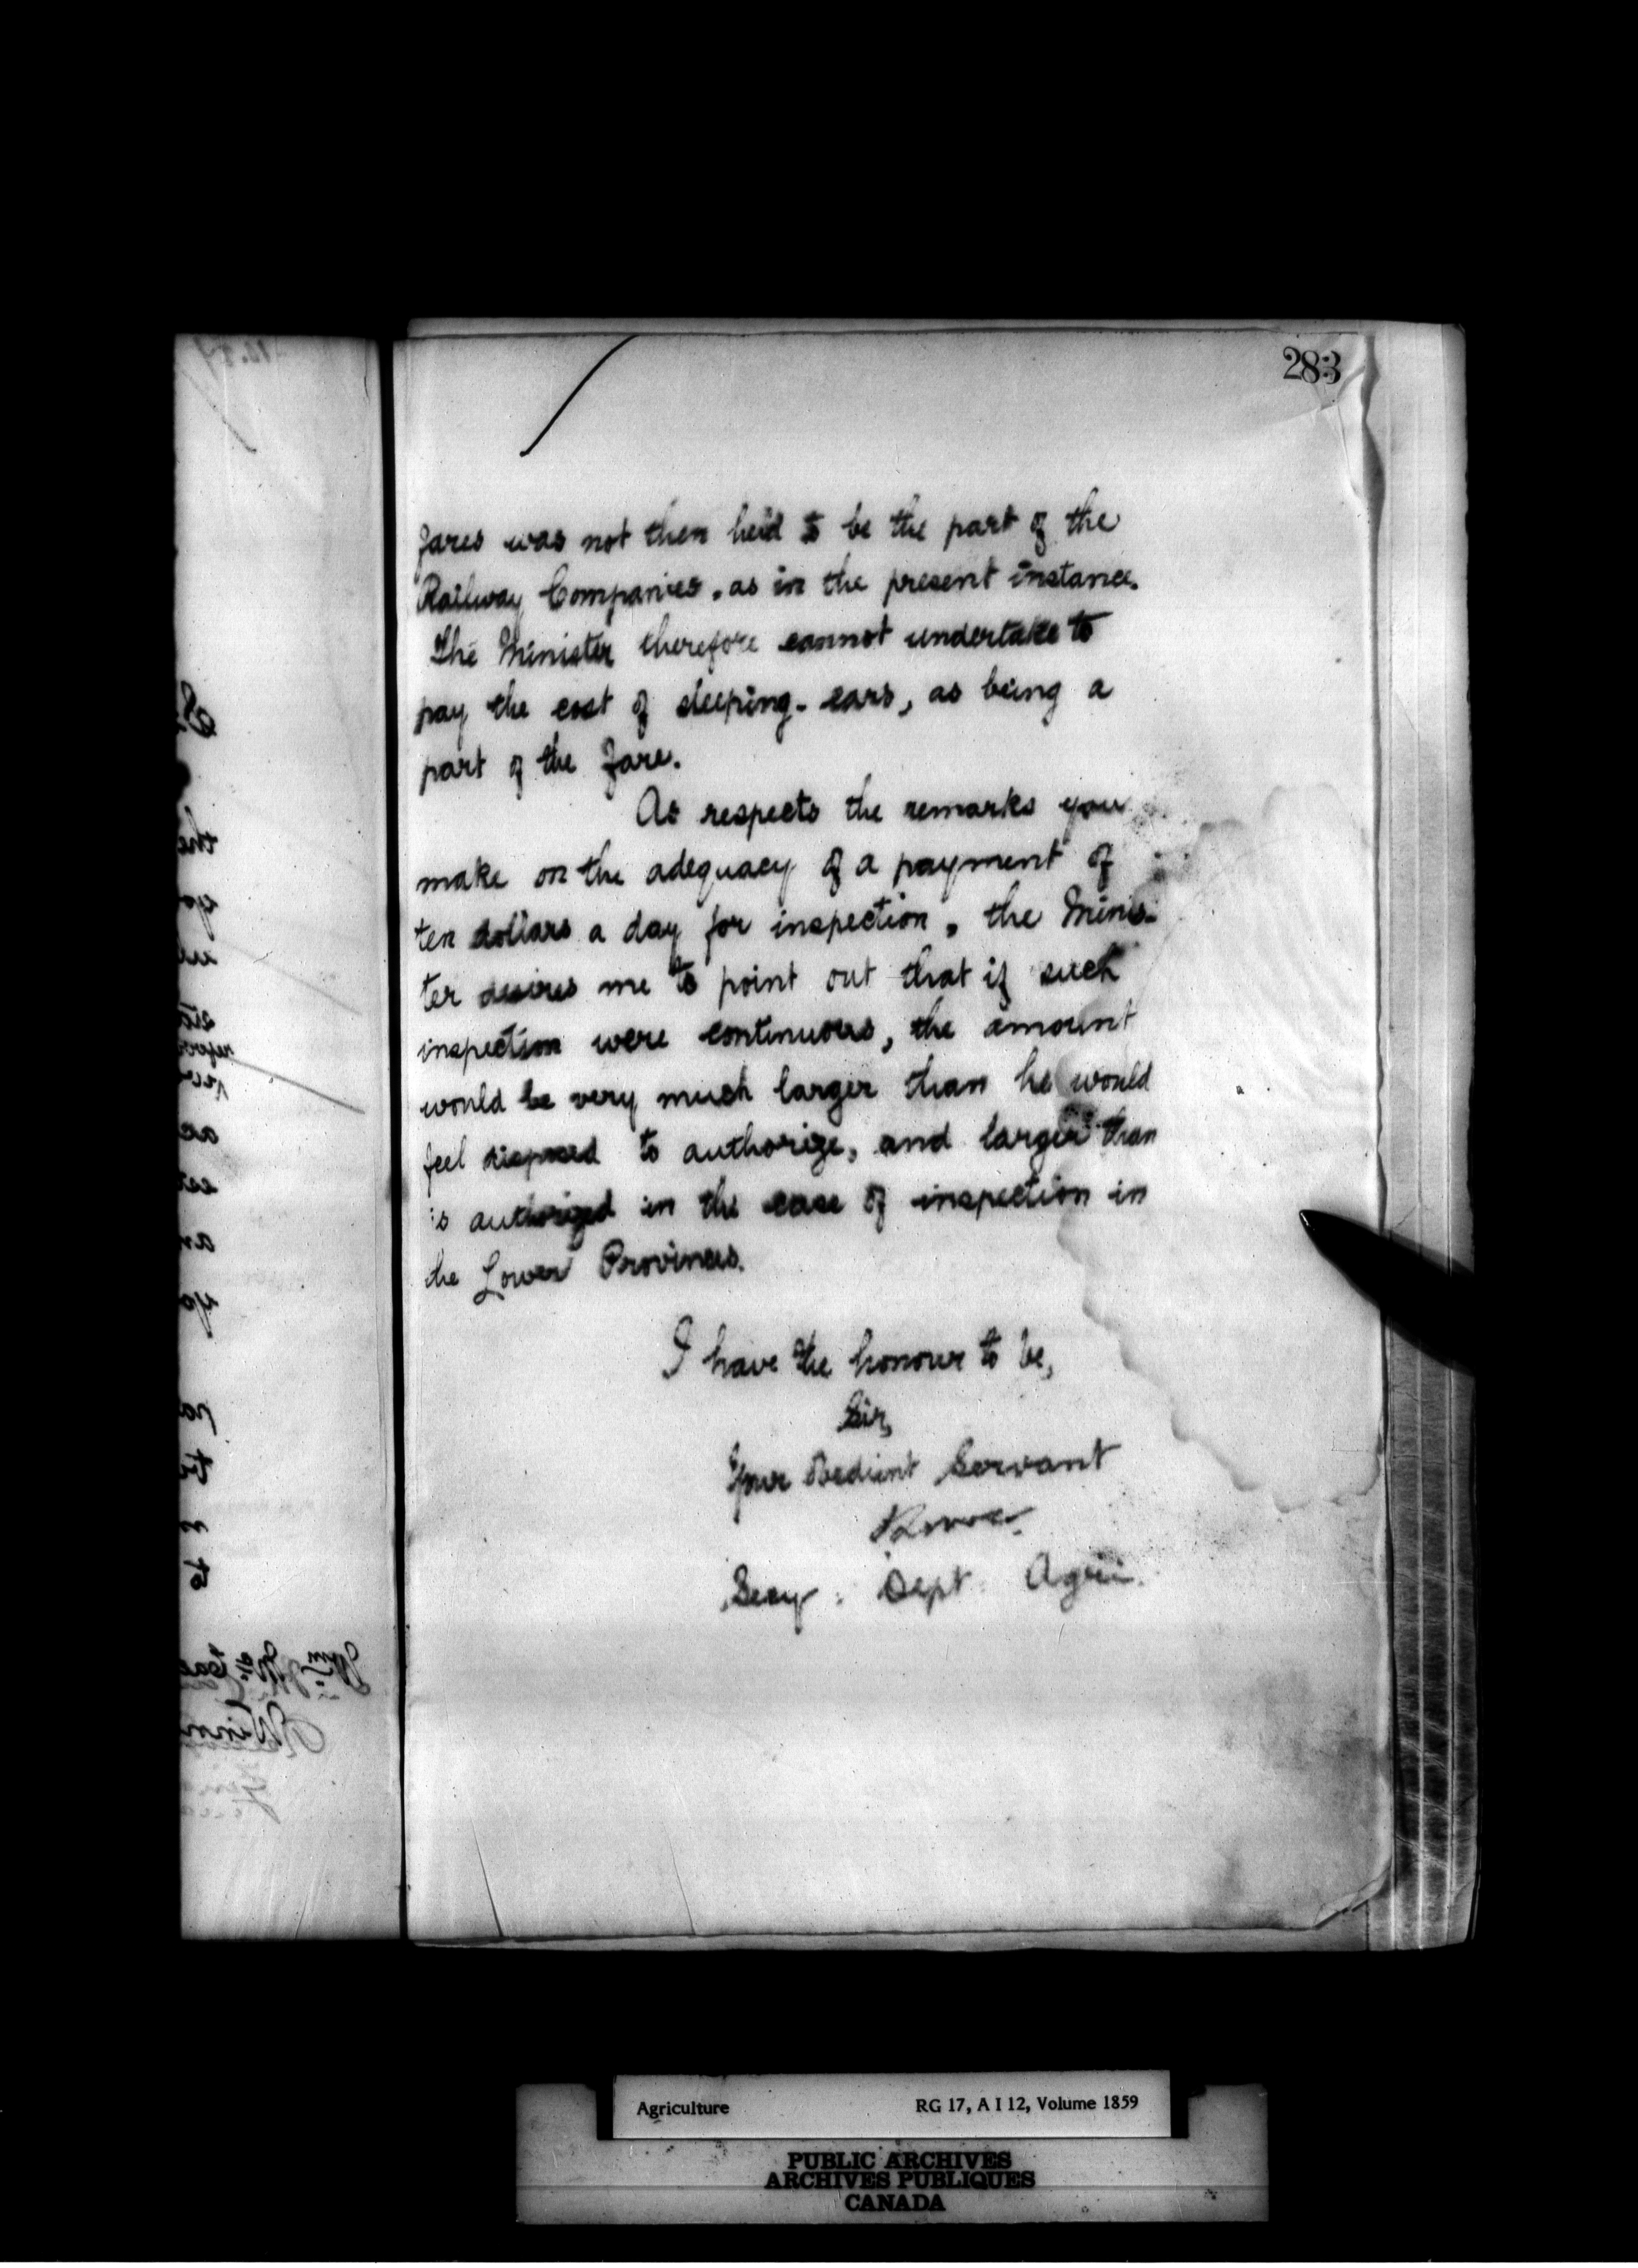 283
fares was not then held to be the part of the
Railway Companies, as in the present instance.
The Minister therefore cannot undertake to
pay the cost of sleeping-cars, as being a
part of the fare.
As respects the remarks you
make on the adequacy of a payment of
ten dollars a day for inspection, the Minis-
ter desires me to point out that if such
inspection were continuous, the amount
would be very much larger than he would
feel disposed to authorize, and larger than
is authorized in the case of inspection in
the Lower Provinces.
I have the honour to be,
Sir,
Your Obedient Servant
Secy: Dept Agri.
Agriculture RG 17, A I 12, Volume 1859
PUBLIC ARCHIVES
ARCHIVES PUBLIQUES
CANADA